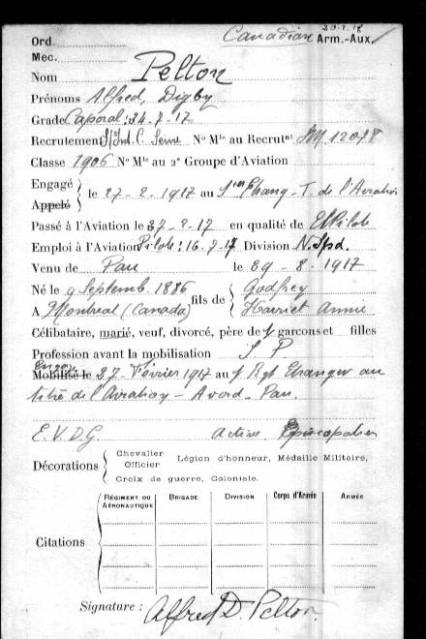 20-7-18
Ord. Canadian Arm.-Aux.
Mec.
Nom Pelton
Prénoms Alfred, Digby
Grade Caporal: 24-7-17
Recrutement S/Int. C. Seine N° Mle au Recrutnt 12078
Classe 1906 N° Mle au 2e Groupe d'Aviation
Engagé
Appelé } le 27-2-1917 au 1er Etrang-T. de l'Aviation
Passé à l'Aviation le 27-2-17 en qualité de El Pilote
Emploi à l'Aviation Pilote: 16-7-17 Division N. Spd.
Venu de Pau le 29-8-1917
Né le 9 Septemb. 1886
A Montreal (Canada) fils de { Godfrey
Harriet Annie
Célibataire, marié, veuf, divorcé, père de 1 garçons et filles
Profession avant la mobilisation S. P.
Engagé
Mobilisé le 27 Février 1917 au 1 Rgt Etranger au
titre de l'Aviation - Avord - Pau.
E. V. D. G. active. Episcopalien
Décorations { Chevalier
Officier Légion d'honneur, Médaille Militaire,
Croix de guerre, Coloniale.
Régiment ou Aéronautique Brigade Division Corps d'Armée Armée
Citations
Signature: Alfred D. Pelton.